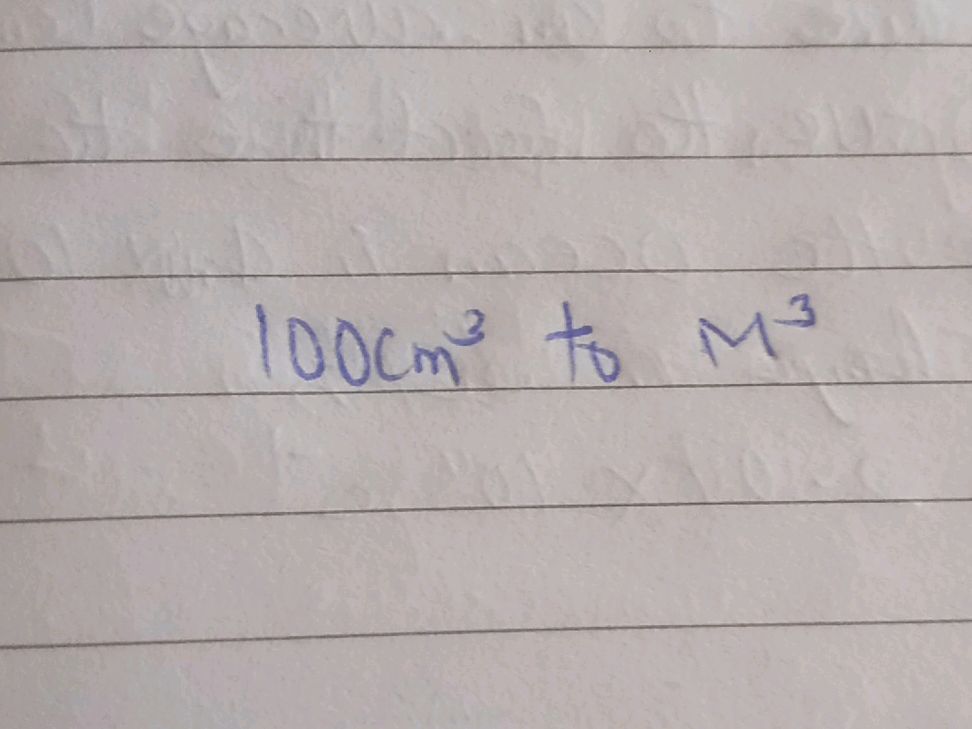 100cm³ to M³